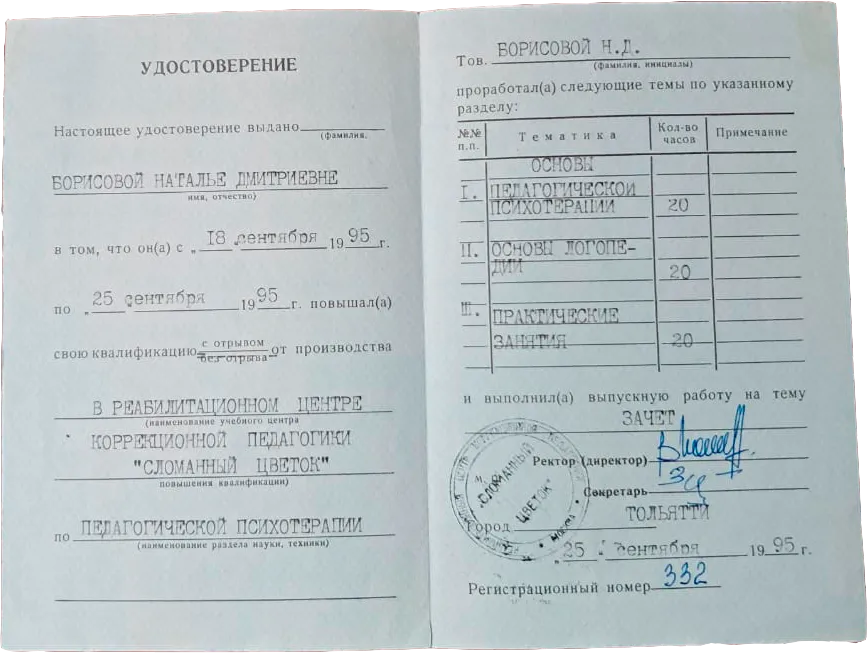 УДОСТОВЕРЕНИЕ
Настоящее удостоверение выдано
(фамилия,
БОРИСОВОЙ НАТАЛЬЕ ДМИТРИЕВНЕ
имя, отчество)
в том, что он(а) с „18 „сентября 1995г.
по „25 „сентября 1995г. повышал(а)
свою квалификацию с отрывом
без отрыва от производства
В РЕАБИЛИТАЦИОННОМ ЦЕНТРЕ
(наименование учебного центра
КОРРЕКЦИОННОЙ ПЕДАГОГИКИ
"СЛОМАННЫЙ ЦВЕТОК"
повышения квалификации)
по ПЕДАГОГИЧЕСКОЙ ПСИХОТЕРАПИИ
(наименование раздела науки, техники)
Тов. БОРИСОВОЙ Н.Д.
(фамилия, инициалы)
проработал(а) следующие темы по указанному
разделу:
№№ п.п. Тематика Кол-во часов Примечание
ОСНОВЫ
I. ПЕДАГОГИЧЕСКОЙ
ПСИХОТЕРАПИИ 20
II. ОСНОВЫ ЛОГОПЕ-
ДИИ 20
III. ПРАКТИЧЕСКИЕ
ЗАНЯТИЯ 20
и выполнил(а) выпускную работу на тему
ЗАЧЕТ
Ректор (директор)
Секретарь
Город ТОЛЬЯТТИ
„25 „ сентября 1995г.
Регистрационный номер 332
"СЛОМАННЫЙ
ЦВЕТОК"
МОСКВА